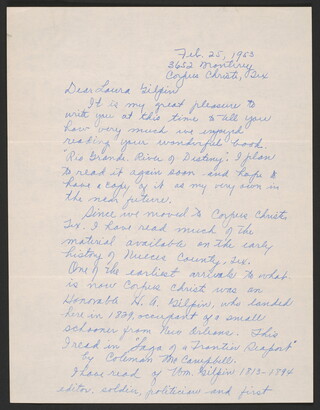 Feb. 25, 1953
3652 Monterey
Corpus Christi, Tex
Dear Laura Gilpin
It is my great pleasure to
write you at this time to tell you
how very much I've enjoyed
reading your wonderful book.
"Rio Grande, River of Destiny". I plan
to read it again soon and hope to
have a copy of it as my very own in
the near future.
Since we moved to Corpus Christi
Tx. I have read much of the
material available on the early
history of Nueces County, Tex.
One of the earliest arrivals to what
is now Corpus Christ was an
Honorable H. A. Gilpin, who landed
here in 1829, occupant of a small
schooner from New Orleans. This
I read in "Saga of a Frontier Seaport"
by Coleman McCampbell.
I have read of Wm. Gilpin 1813-1894
editor, soldier, politician and first